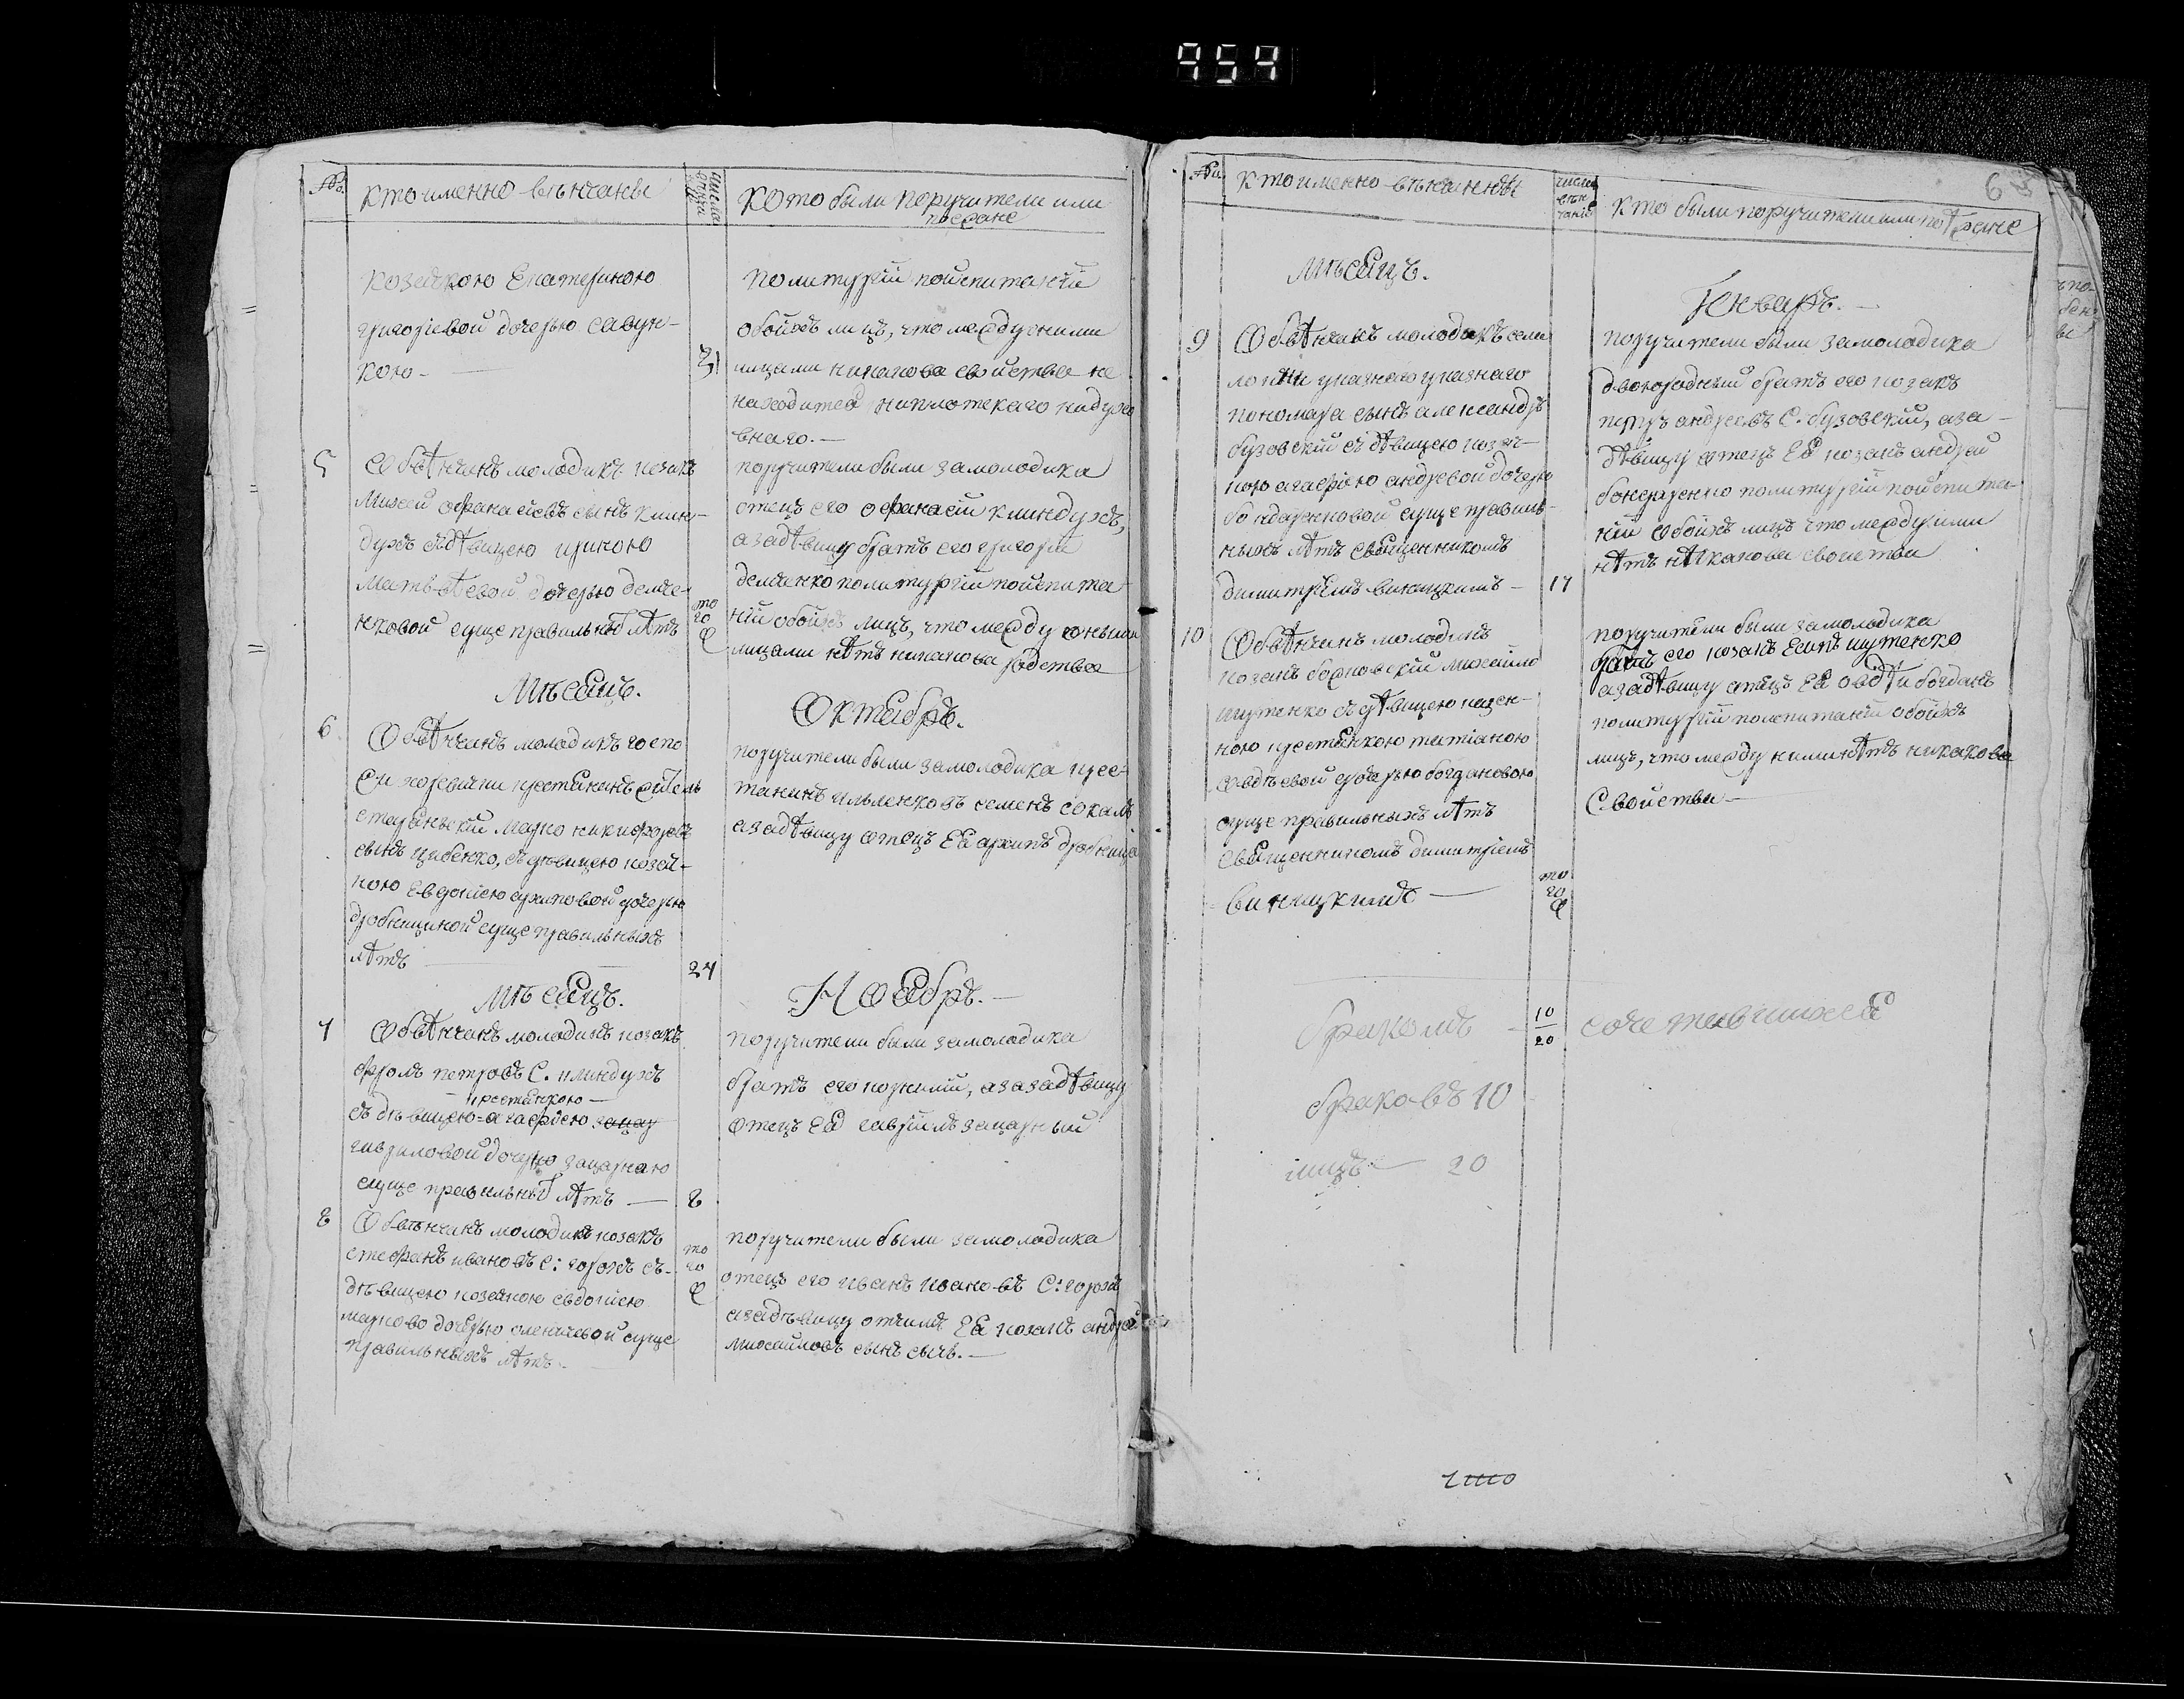 954
№
кто именно вѣнчаны
кото были поручители или
поезане
козачкою Екатериною
григорїевой дочерью савун-
кою -
21
по литургїи по испитанїи
обойхъ лицъ, что между сними
лицами никакова свойства не
находится ни плотскаго ни духо
внаго. —
5
Обвѣнчанъ молодикъ козакъ
михей офанасїевъ сынъ клин-
духъ сдѣвицею ириною
матвѣевой дочерью демче-
нковой суще правильныхъ лѣтъ
то
го
поручители были замолодика
отецъ его офанасїи клиндухъ,
азадѣвицу братъ его григорїи
демченко политургїи по испита
нїи обойхъ лицъ, что между оными
лицами нѣтъ никакова родства
Мѣсяцъ.
Октябрь.
6
Обвѣнчанъ молодикъ госпо
крестянинъ
марко никифоровъ
сынъ цибенко, съ дѣвицею козач-
кою Евдокїею архиповой дочерью
суще правильныхъ
лѣтъ
24
поручители были замолодика крес-
танинъ семенъ сокалъ
азадѣвицу отецъ Ея архипъ
Мѣсяцъ.
Ноябрь. —
7
Обвѣнчанъ молодикъ козакъ
фролъ петровъ С. клиндухъ
крестянкою —
съ дѣвицею = агафїею зацар
гавриловой дочерью зацарною
суще правильныхъ лѣтъ —
8
поручители были замолодика
братъ его корнїй, азазадѣвицу
отецъ Ея гаврїилъ зацарный
8
Обвѣнчанъ молодикъ козакъ
стефанъ ивановъ С: горохъ съ-
дѣвицею козачкою евдокїею
марково дочерью суще
правильныхъ лѣтъ -
то
го
поручители были замолодика
отецъ его иванъ ивановъ С: горохъ
азадѣвицу отчимъ Ея козакъ андрей
михайловъ сынъ сычь. —
№
кто именно вѣнчанны
число
вѣн
чанїе
кто были поручители или поѣзане
6
Мѣсяцъ.
Генварь. —
9
Обвѣнчанъ молодикъ села
указного указнаго
пономара сынъ александръ
бузовскїй съ дѣвицею козач-
кою агафїею андреевой дочерью
бондаренковой суще правиль-
ныхъ лѣтъ священникомъ
димитрїемъ виницкимъ —
17
поручители были замолодика
двоюродный братъ его козакъ
петръ андреевъ С. бузовскїй, аза-
дѣвицу отецъ Ея козакъ андрей
бондаренко политургїи по испита-
нїи обойхъ лицъ что между ими
нѣтъ нѣкакова свойства
10
Обвѣнчанъ молодикъ
козакъ михайло
шутенко съ дѣвицею казен-
ною крестянкою татїаною
овдѣевой дочерью богдановою
суще правильныхъ лѣтъ
священникомъ димитрїемъ
виницкимъ —
то
го
поручители были замолодика
братъ его козакъ Есипъ шутенко
азадѣвицу отецъ Ея овдѣи богданъ
политургїи по испитанїи обойхъ
лицъ, что между ними нѣтъ никакова
Свойства —
бракомъ — 10 сочетавшихся
20
браковъ 10
лицъ — 20